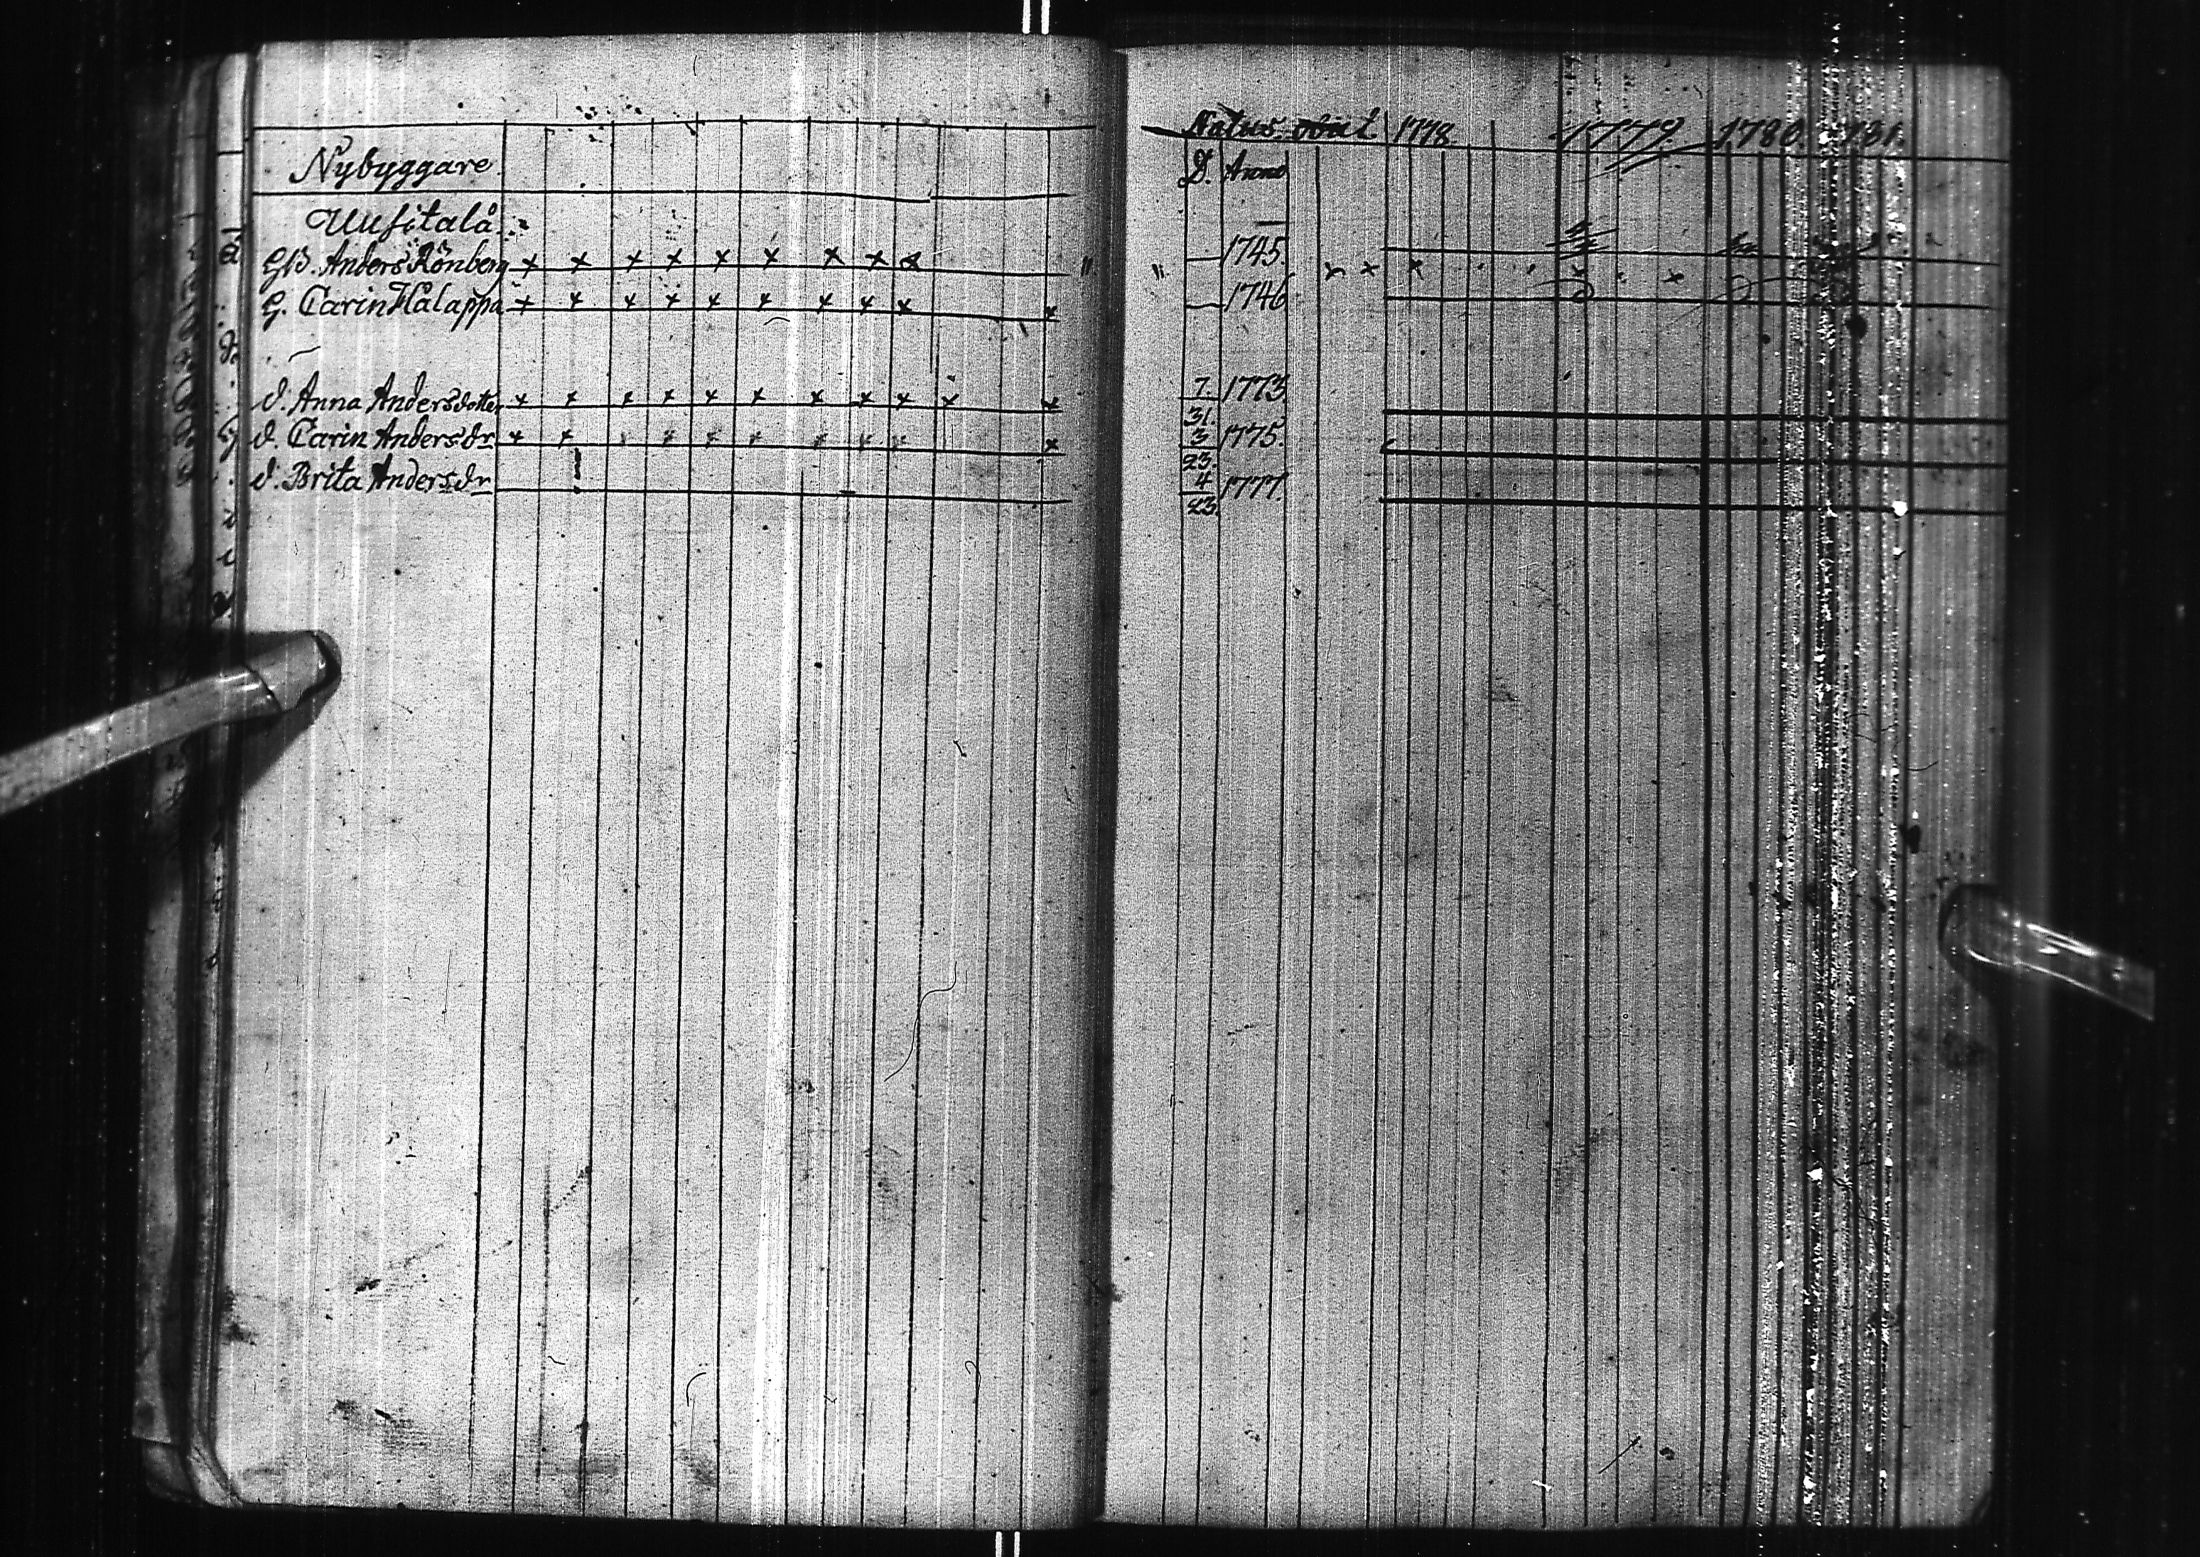 Nybyggare
Uusitalå
Anders Rönberg 1745
G. Carin Halappa 1746
d. Anna Andersdotter 7. 1773
31.
d. Carin Andersdr 3 1775
23.
d. Brita Andersdr 4 1777.
23.
Natus obiit 1778 1779. 1780. 1781.
D. Anno